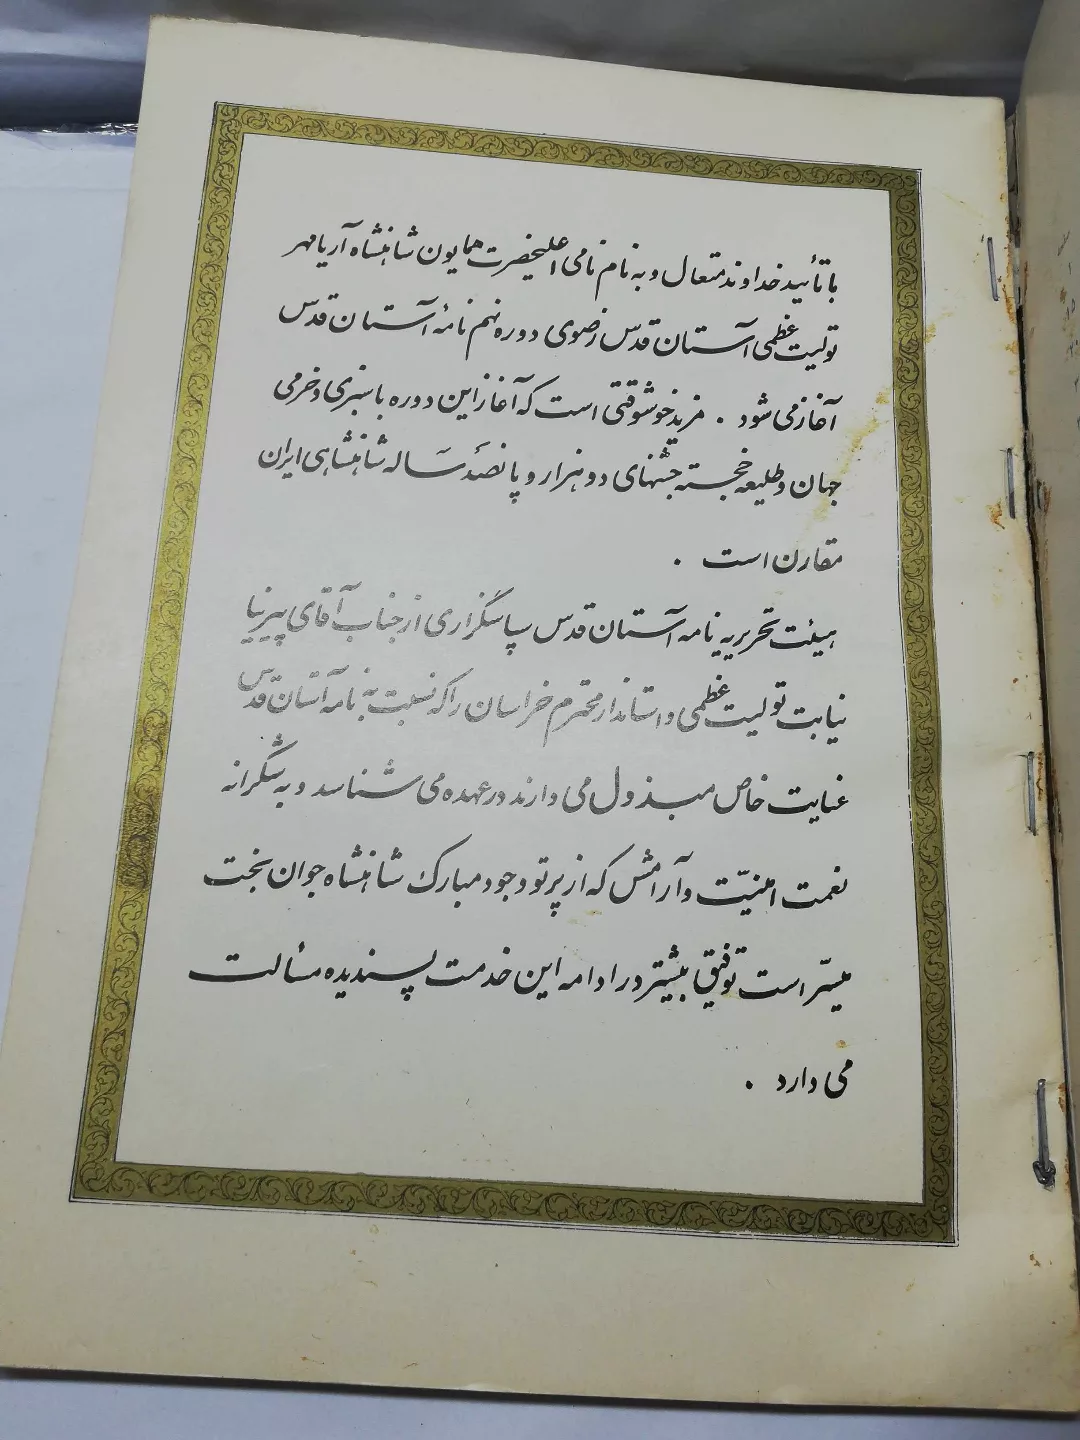 با تأیید خداوند متعال و به نام نامی اعلیحضرت همایون شاهنشاه آریامهر
تولیت عظمی آستان قدس رضوی دوره نهم نامهٔ آستان قدس
آغاز می شود . مزید خوشوقتی است که آغاز این دوره با سبزی و خرمی
جهان و طلیعه خجسته جشنهای دو هزار و پانصد ساله شاهنشاهی ایران
مقارن است .
هیئت تحریریه نامه آستان قدس سپاسگزاری از جناب آقای پیرنیا
نیابت تولیت عظمی و استاندار محترم خراسان را که نسبت به نامه آستان قدس
عنایت خاص مبذول می دارند در عهده می شناسد و به شکرانه
نعمت امنیّت و آرامش که از پرتو وجود مبارک شاهنشاه جوان بخت
میسّر است توفیق بیشتر در ادامه این خدمت پسندیده مسألت
می دارد .